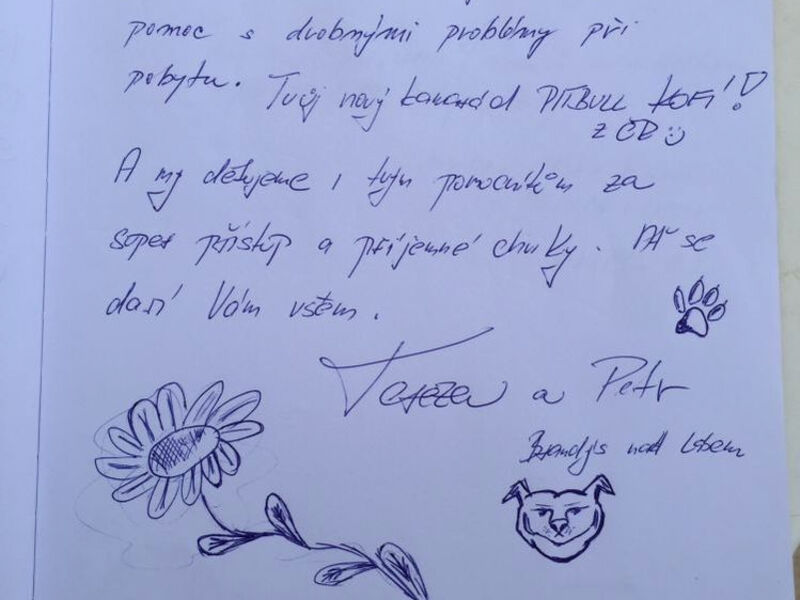 pomoc s drobnými problémy při
pobytu. Tvůj nový kamarád PITBULL KOFI!
z ČR
A my děkujeme i tvým pomocníkům za
super přístup a příjemné chvilky. Ať se
daří Vám všem.
Tereza a Petr
Brandýs nad Labem